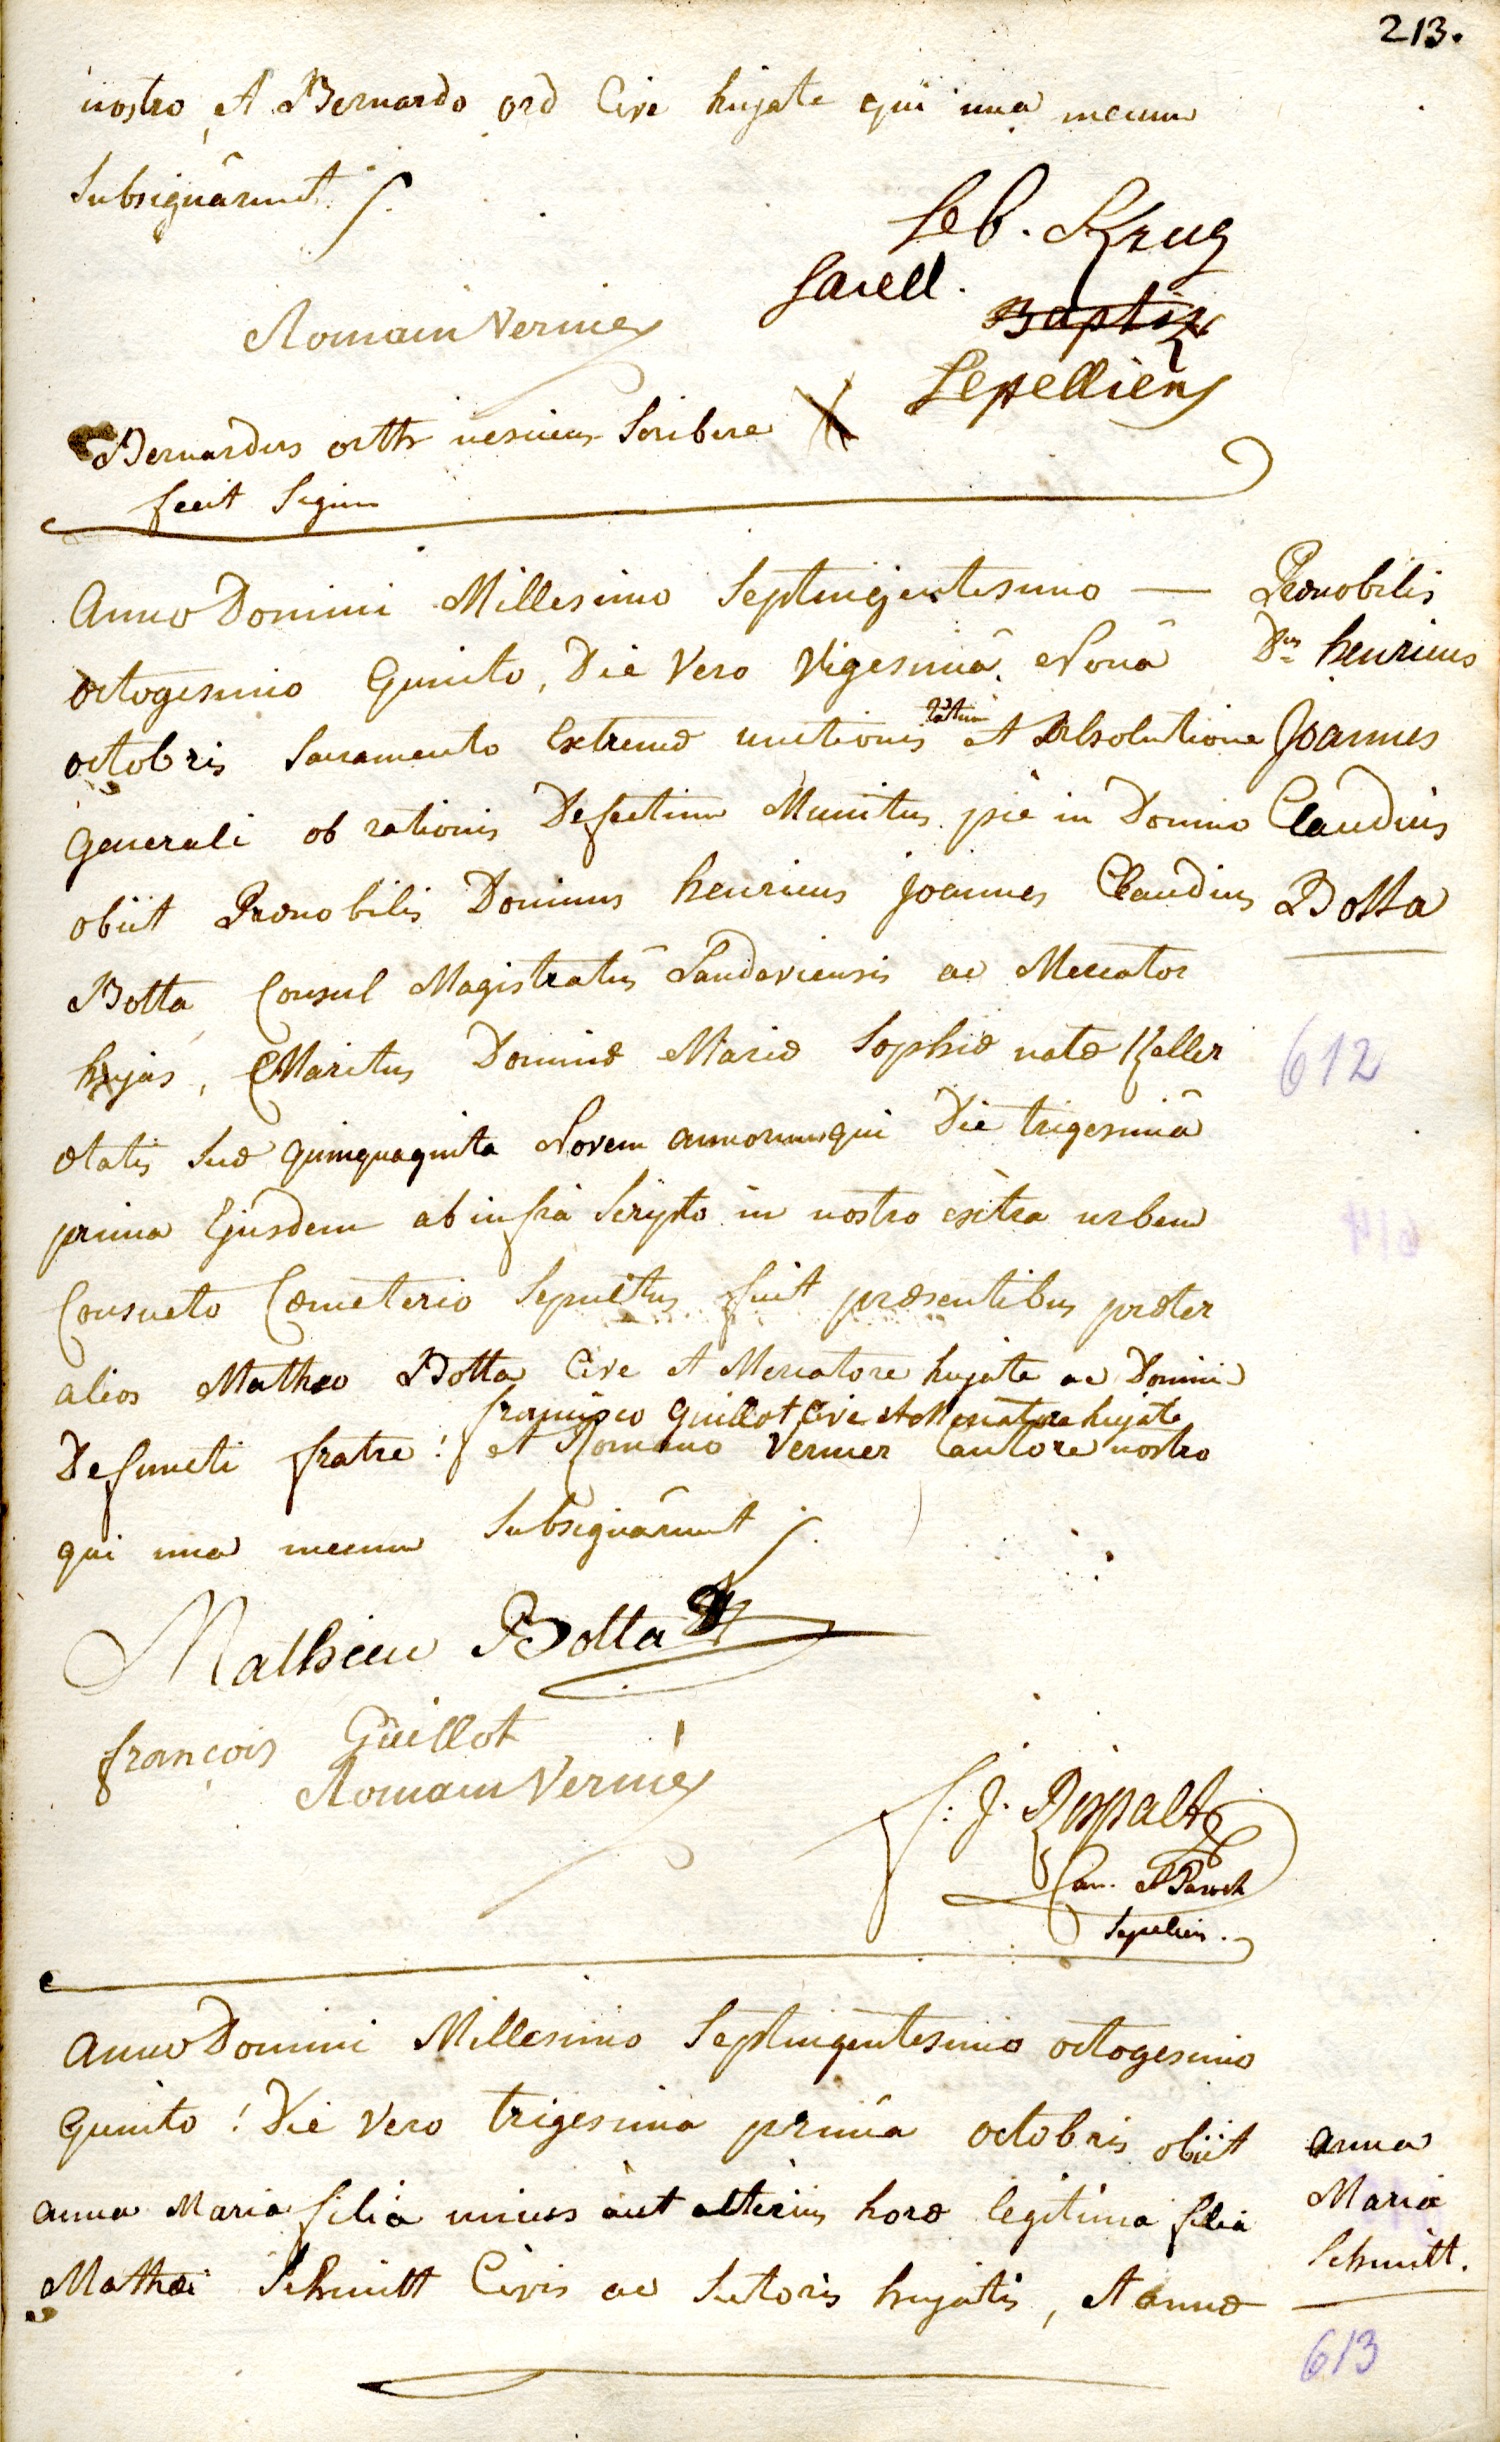 213.
nostro, et Bernardo ord Cive hujate qui una mecum
Subsignârunt ./.
Seb. Krug
Sacell.
Baptiz
Romain Vernier
Sepelliens
Bernardus orth nesciens Scribere
fecit Signum
Anno Domini Millesimo Septingentesimo —
octogesimo Quinto, Die Vero Vigesimâ Nonâ
octobris Sacramento Extremæ unctionis et Absolutione
generali ob rationis Defectum Munitus piè in Domino
obiit Prænobilis Dominus henricus joannes Claudius
Botta Consul Magistratûs Landaviensis ac Mercator
hujas, Maritus Dominæ Mariæ Sophiæ natæ Keller
ætatis suæ quinquaginta Novem annorum qui Die trigesimâ
prima Ejusdem ab infrà Scripto in nostro extra urbem
Consueto Cœmeterio Sepultus fuit præsentibus præter
alios Mathæo Botta Cive et Mercatore hujate ac Domini
francisco Guillot Cive et Mercatore hujate
Defuncti fratre! et Romano Vernier Cantore nostro
qui una mecum Subsignârunt ./.
Prænobilis
Dnus henricus
Joannes
Claudius
Botta
612
Mathieu Botta
françois Guillot
Romain Vernier
Can. Paroch
Sepeliens.
Anno Domini Millesimo Septingentesimo octogesimo
Quinto! Die Vero trigesima primâ octobris obiit
anna Maria filia unius aut alterius horæ legitima filia
Mathæi Schmitt Civis ac Sutoris hujatis, et annæ
anna
Maria
Schmitt.
613